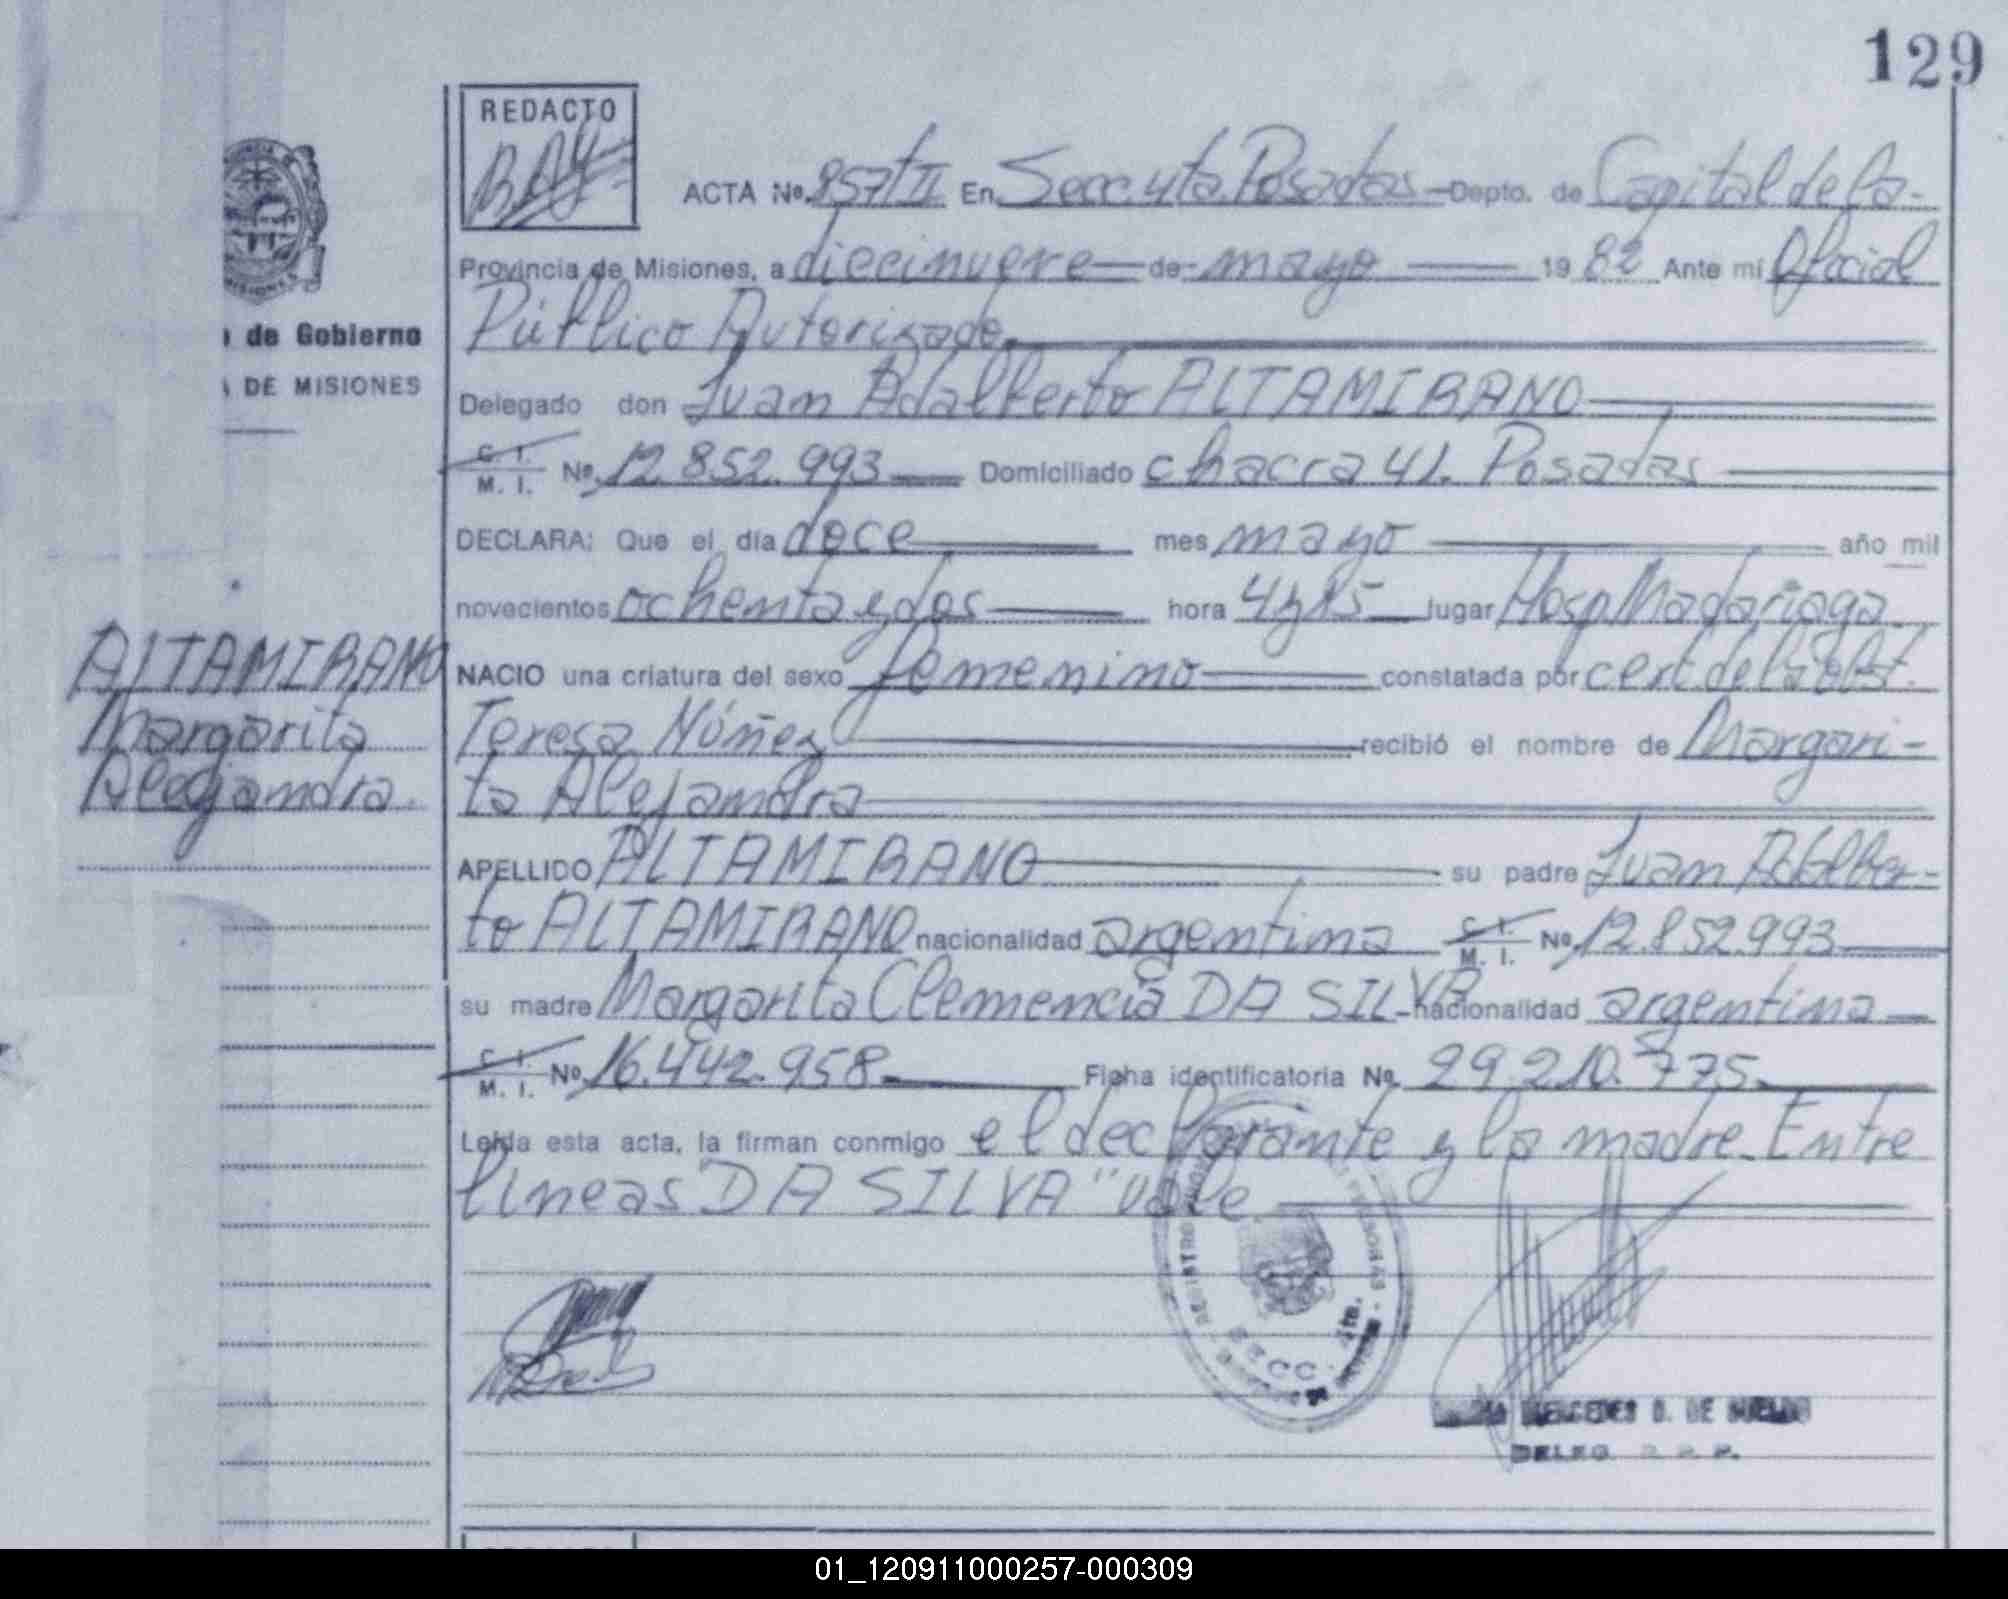 129
REDACTO
ACTA Nº 857 t II En Secc. 4ta. Posadas - Depto. de Capital de la -
Provincia de Misiones, a diecinueve de mayo 1982 Ante mí Oficial
Público Autorizado
de Gobierno
DE MISIONES
Delegado don Juan Adalberto ALTAMIRANO
C. I. M. I. Nº 12.852.993 Domiciliado chacra 41. Posadas
DECLARA: Que el día doce mes mayo año mil
novecientos ochenta y dos hora 4 y 15 lugar Hosp. Madariaga
NACIO una criatura del sexo femenino constatada por cert. de la Obst.
Teresa Núñez recibió el nombre de Margari-
ta Alejandra
ALTAMIRANO
Margarita
Alejandra.
APELLIDO ALTAMIRANO su padre Juan Adalber-
to ALTAMIRANO nacionalidad argentina C. I. M. I. Nº 12.852.993
su madre Margarita Clemencia DA SILVA nacionalidad argentina
C. I. M. I. Nº 16.442.958 Ficha identificatoria Nº 29.210.775
Leída esta acta, la firman conmigo el declarante y la madre. Entre
líneas "DA SILVA" vale
SECC. 4ta.
MERCEDES D. DE
DELEG.
01_120911000257-000309